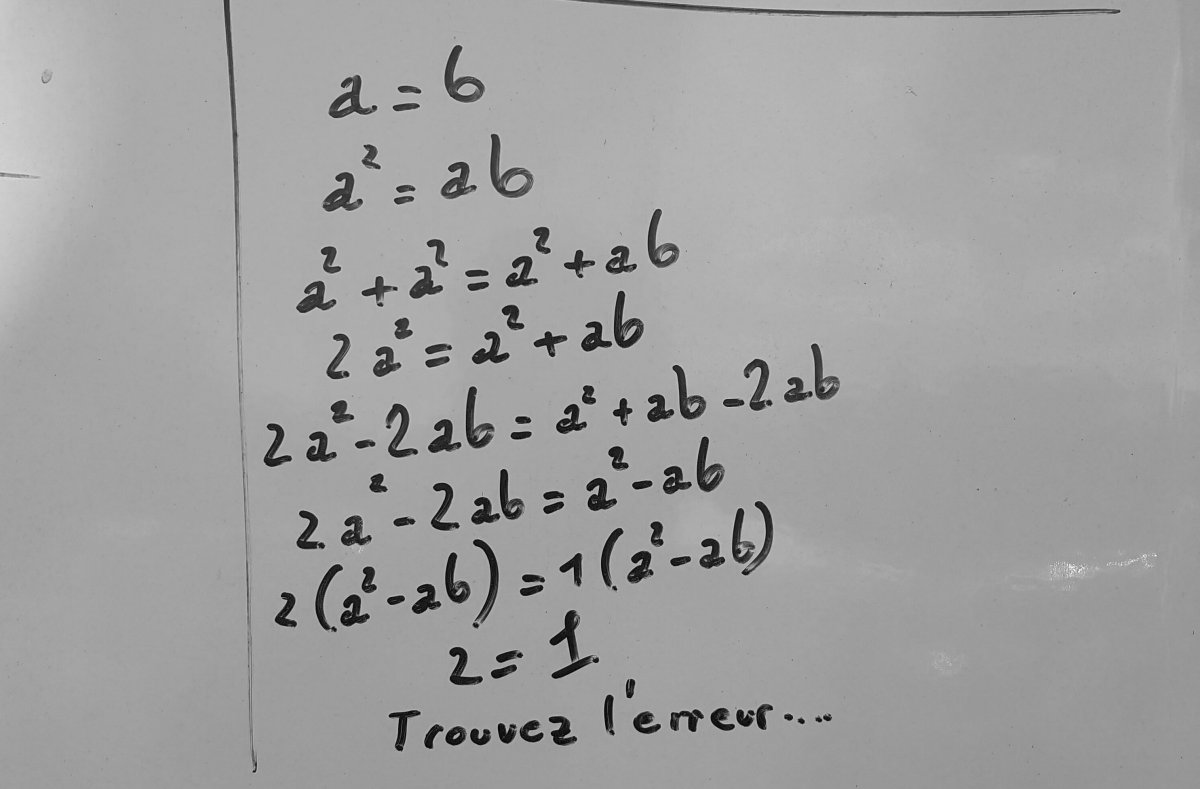 a = b
a² = ab
a² + a² = a² + ab
2a² = a² + ab
2a² - 2ab = a² + ab - 2ab
2a² - 2ab = a² - ab
2(a² - ab) = 1(a² - ab)
2 = 1
Trouvez l'erreur....